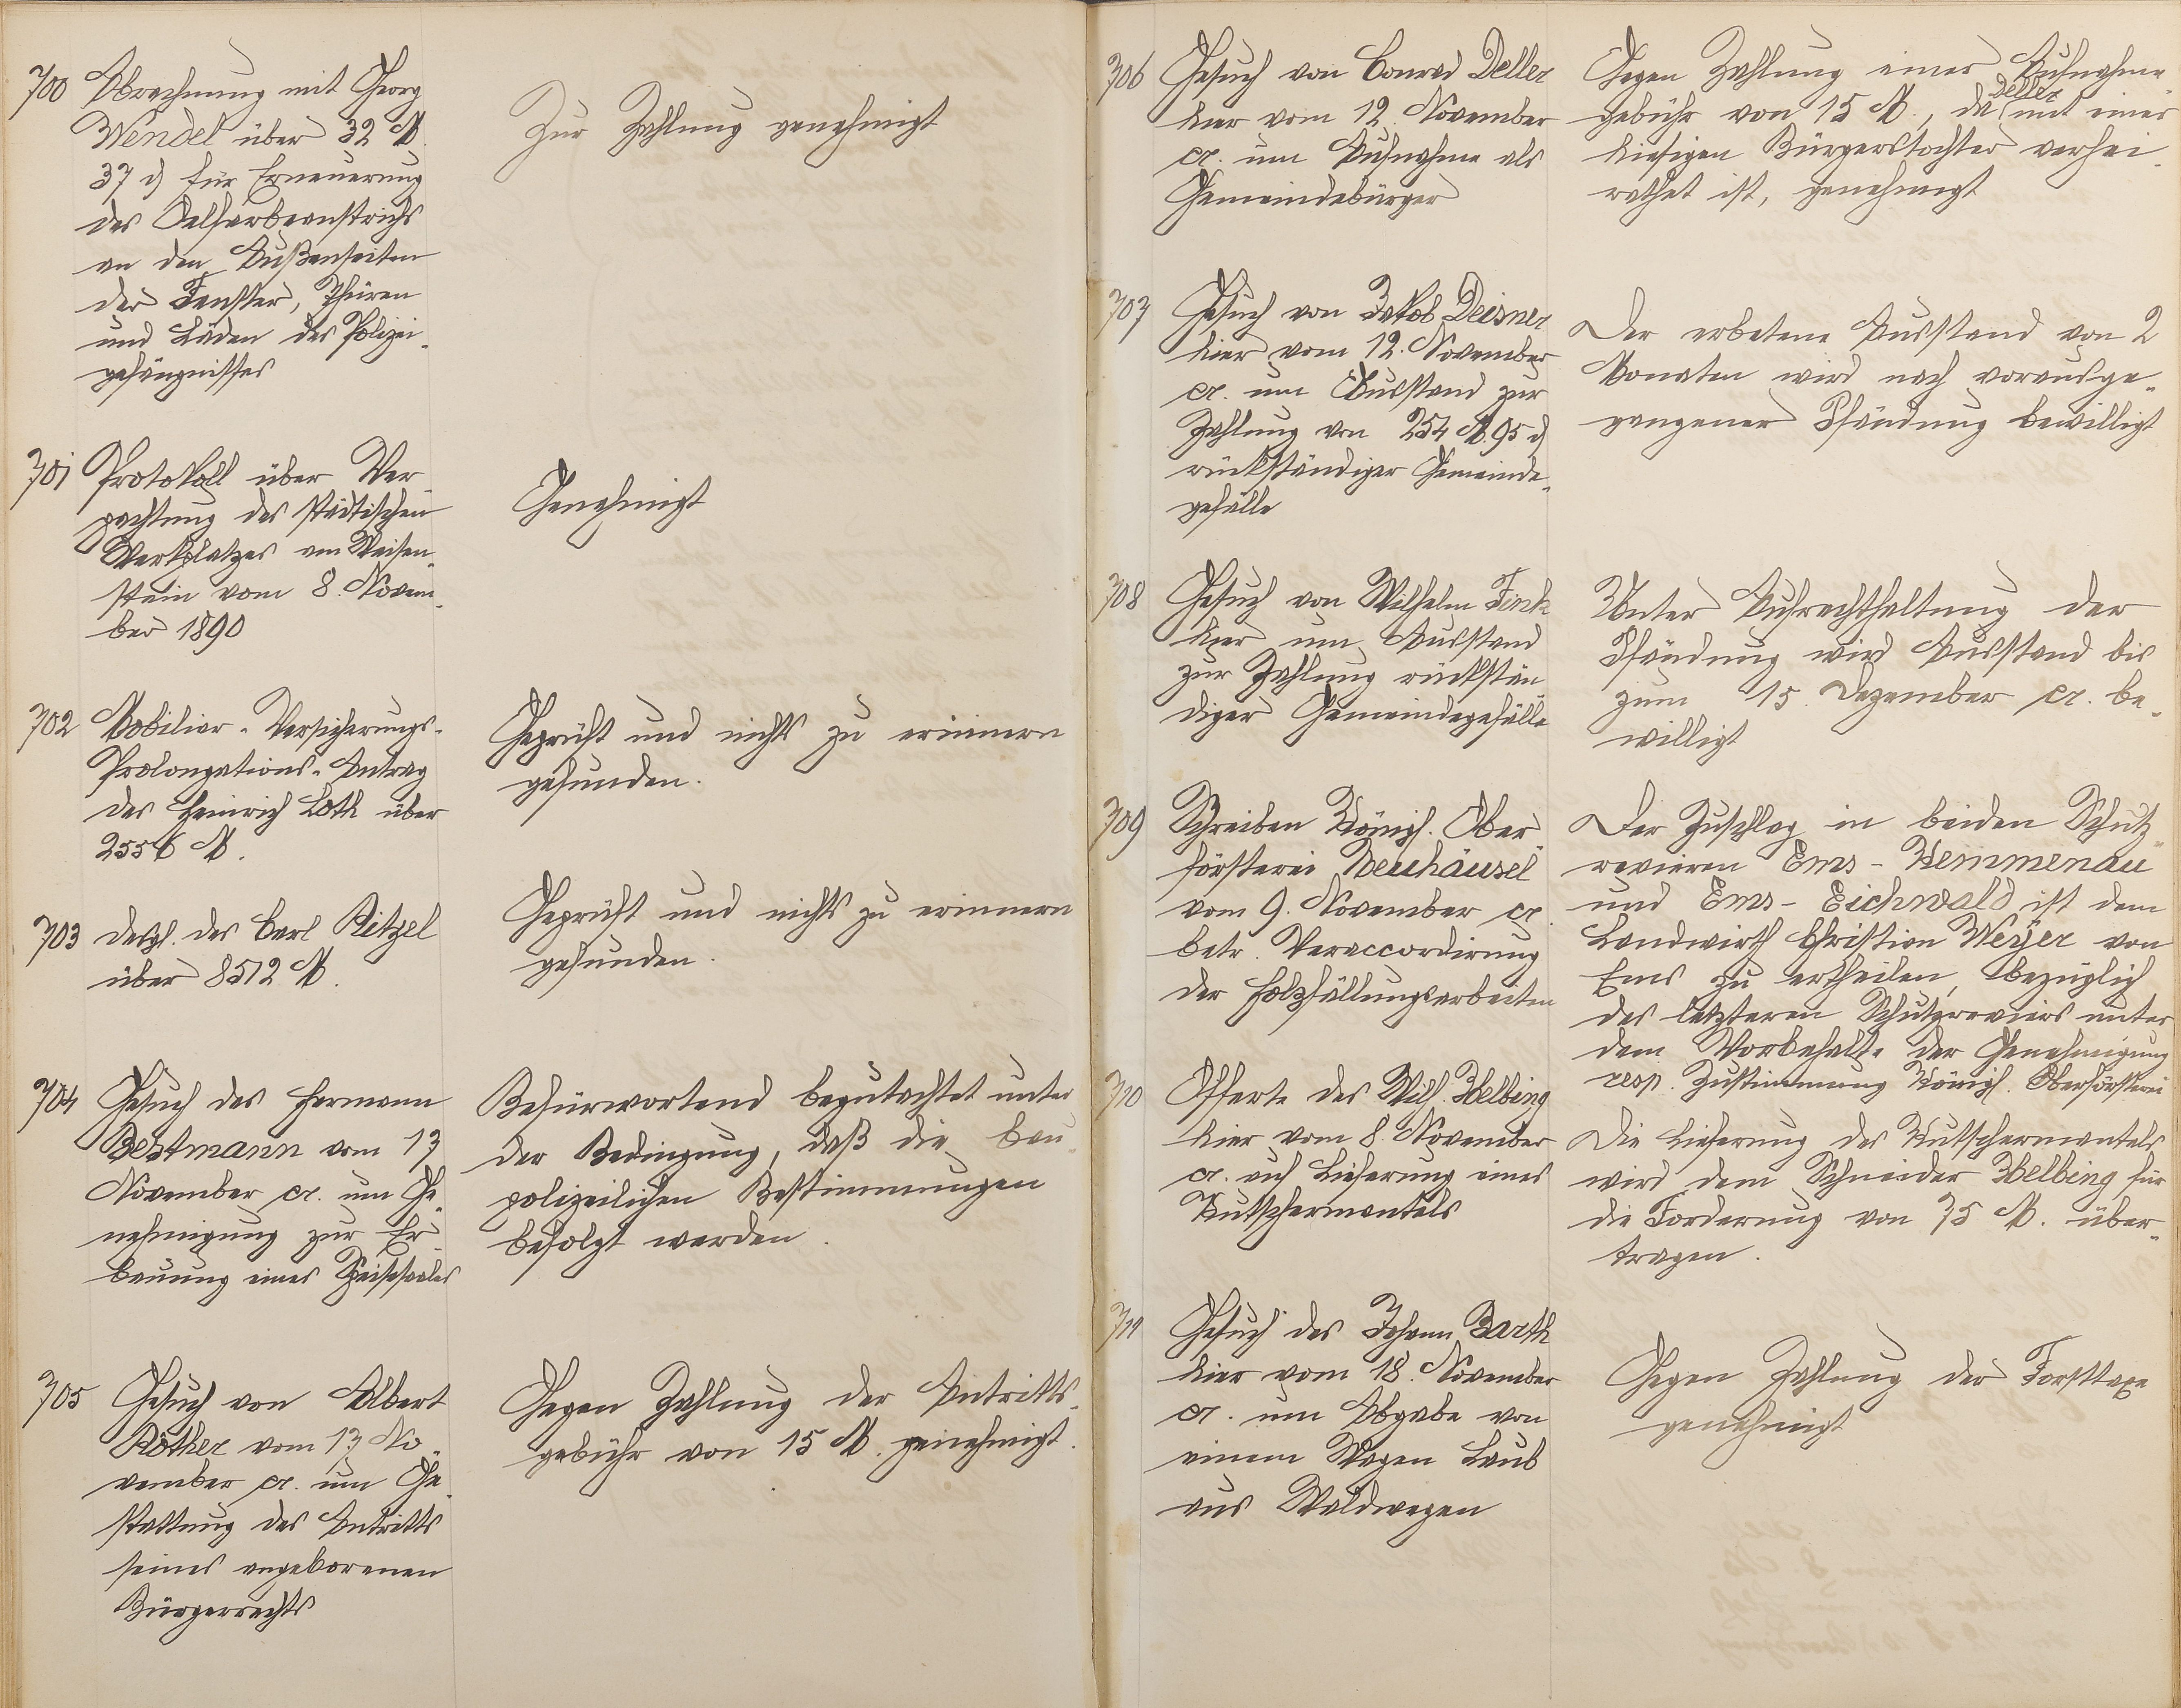 700 Abrechnung mit Georg
Wendel über 32 M.
37 d für Erneuerung
des Oelfarbeanstrichs
an den Außenseiten
der Fenster, Thüren
und Läden des Polizei-
gefängnisses
Zur Zahlung genehmigt
701 Protokoll über Ver-
pachtung des städtischen
Werkplatzes am Weisen-
stein vom 8. Novem-
ber 1890
Genehmigt
702 Mobiliar-Versicherungs-
Prolongations-Antrag
des Heinrich Loth über
2556 M.
Geprüft und nichts zu erinnern
gefunden.
703 desgl. des Carl Ritzel
über 8512 M.
Geprüft und nichts zu erinnern
gefunden.
704 Gesuch des Hermann
Bestmann vom 13
November cr. um Ge-
nehmigung zur Er-
bauung eines Speisesaales
Befürwortend begutachtet unter
der Bedingung, daß die bau-
polizeilichen Bestimmungen
befolgt werden.
705 Gesuch von Albert
Röther vom 13 No-
vember cr. um Ge-
stattung des Antritts
seines angeborenen
Bürgerrechts
Gegen Zahlung der Antritts-
gebühr von 15 M. genehmigt.
706 Gesuch von Conrad Deller
hier vom 12. November
cr. um Aufnahme als
Gemeindebürger
Gegen Zahlung einer Aufnahme
gebühr von 15 M., da Deller mit einer
hiesigen Bürgerstochter verhei-
rathet ist, genehmigt
707 Gesuch von Jakob Deisner
hier vom 12. November
cr. um Ausstand zur
Zahlung von 254 M. 95 d
rückständiger Gemeinde-
gefälle
Der erbetene Ausstand von 2
Monaten wird nach vorausge-
gangener Pfändung bewilligt
708 Gesuch von Wilhelm Fink
hier um Ausstand
zur Zahlung rückstän
diger Gemeindegefälle
Unter Aufrechthaltung der
Pfändung wird Ausstand bis
zum 15. Dezember cr. be-
willigt
709 Schreiben Königl. Ober-
försterei Neuhäusel
vom 9. November cr.
betr. Veraccordirung
der Holzfällungsarbeiten
Der Zuschlag in beiden Schutz-
revieren Ems-Kemmenau
und Ems-Eichwald ist dem
Landwirth Christian Weÿer von
Ems zu ertheilen, bezüglich
des letzteren Schutzreviers unter
dem Vorbehalte der Genehmigung
resp. Zustimmung Königl. Oberförsterei
710 Offerte des Wilh. Helbing
hier vom 8. November
cr. auf Lieferung eines
Kutschermantels
Die Lieferung des Kutschermantels
wird dem Schneider Helbing für
die Forderung von 35 M. über-
tragen.
711 Gesuch des Johann Barth
hier vom 18. November
cr. um Abgabe von
einem Wagen Laub
aus Waldwegen
Gegen Zahlung der Forsttaxe
genehmigt